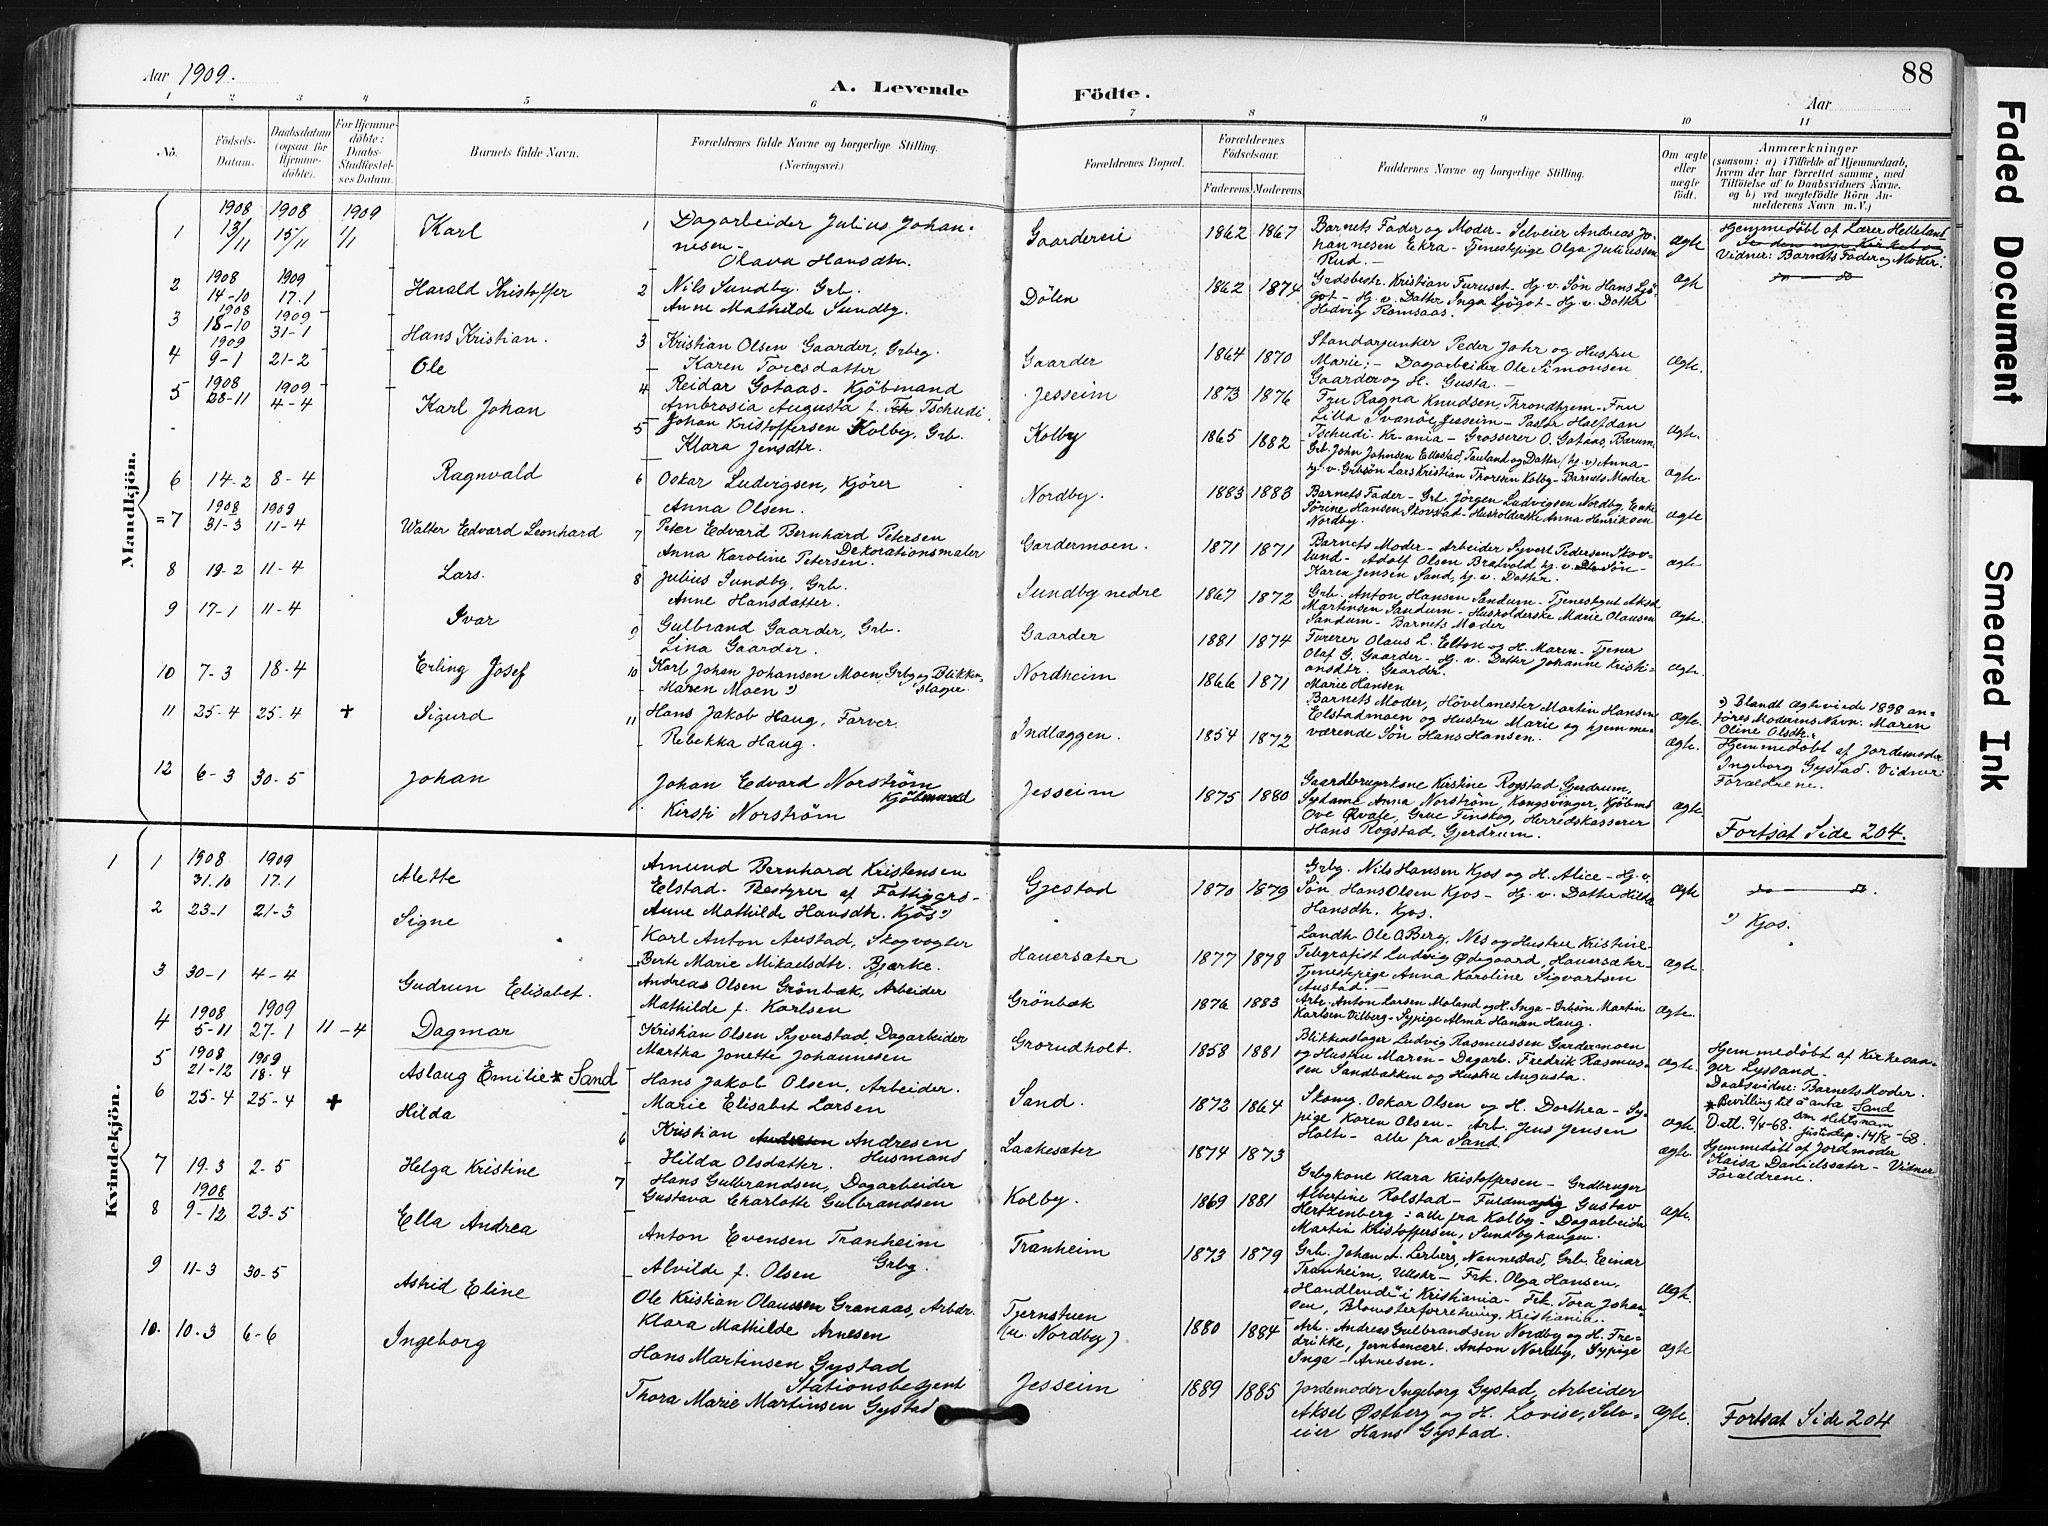 Aar 1909.
A. Levende Födte.
Aar
88
1 2 3 4 5 6 7 8 9 10 11
No.
Födsels-Datum.
Daabsdatum (ogsaa for Hjemmedöbte).
For Hjemmedöbte: Daabs-Stadfæstelses Datum.
Barnets fulde Navn.
Forældrenes fulde Navne og borgerlige Stilling. (Næringsvei.)
Forældrenes Bopæl.
Forældrenes Födselsaar.
Faderens. Moderens.
Faddernes Navne og borgerlige Stilling.
Om ægte eller uægte födt.
Anmærkninger
(saasom: a) i Tilfælde af Hjemmedaab,
hvem der har forrettet samme, med
Tilföielse af to Daabsvidners Navne.
og b) ved uægtefödte Börn An-
melderens Navn m. V.)
Mandkjön.
1 1908 13/11 1908 15/11 1909 1/1 Karl
1 Dagarbeider Julius Johan-
nesen -
Olava Hansdtr.
Gaardereie 1862 1867
Barnets Fader og Moder - Selveier Andreas Jo-
hannesen Ekra - Tjenestpige Olga Juliussen
Rud. -
ægte
Hjemmedöbt af Lærer Helleland
Vidner: Barnets Fader og Moder.
2 1908 14-10 1909 17.1 Harald Kristoffer
2 Nils Sundby. Grb.
Anne Mathilde Sundby.
Dölen 1862 1874
Grdsbestr. Kristian Furuset - Hj. v. Sön Hans Ljö-
got - Hj. v. Datter Inga Ljögot - Hj. v. Dotter
Hedvig Romsaas.
ægte
do do
3 1908 18-10 1909 31-1 Hans Kristian.
3 Kristian Olsen Gaarder, Grbrg.
Karen Toresdatter
Gaarder 1864 1870
Standarjunker Peder Johr og Hustru
Marie: - Dagarbeider Ole Simonsen
Gaarder og H. Gusta. -
ægte.
4 1909 9-1 21-2 Ole
4 Reidar Gotaas - Kjöbmand
Ambrosia Augusta f. Tschudi
Jesseim 1873 1876
Fru Ragna Knudsen, Throndhjem - Fru
Lilla Svanöe, Jesseim - Pastor Halfdan
Tschudi. Kr.ania - Grosserer O. Gotaas, Bærum.
ægte.
5 1908 28-11 1909 4-4 Karl Johan
5 Johan Kristoffersen Kolby, Grb.
Klara Jensdtr.
Kolby 1865 1882
Grb. John Johnsen Ellestad, Tauland og Datter (hj. v.) Anna -
hj. v. Grbsön Lars Kristian Thoresen Kolby - Barnets Moder
ægte.
6 14-2 8-4 Ragnvald
6 Oskar Ludvigsen, Kjörer
Anna Olsen.
Nordby. 1883 1883
Barnets Fader - Grb. Jörgen Ludvigsen Nordby, Enke
Sörine Hansen, Skovstad - Husholderske Anna Henriksen
Nordby.
ægte
=7 1908 31-3 1909 11-4 Walter Edvard Leonhard
7 Peter Edvard Bernhard Petersen
Dekorationsmaler
Anna Karoline Petersen.
Gardermoen. 1871 1871
Barnets Moder - Arbeider Syvert Pedersen Skov-
lund - Adolf Olsen Bratvold hj. v. Sön -
Karen Jensen Sand, hj. v. Datter.
ægte
8 19-2 11-4 Lars.
8 Julius Sundby, Grb.
Anne Hansdatter.
Sundby nedre 1867 1872
Grb. Anton Hansen Sandum - Tjenestgut Aksel
Martinsen Sandum - Husholderske Marie Olausen
Sandum - Barnets Moder
ægte.
9 17-1 11-4 Ivar
9 Gulbrand Gaarder, Grb.
Lina Gaarder.
Gaarder 1881 1874
Furerer Olaus L. Elton og H. Maren - Tjener
Olaf G. Gaarder - Hj. v. Datter Johanne Kristi-
ansdtr. Gaarder.
ægte.
10 7-3 18-4 Erling Josef
10 Karl Johan Johansen Moen, Grbr og Blikken-
slager
Maren Moen ⁾
Nordheim 1866 1871
Marie Hansen
Barnets Moder, Hövelmester Martin Hansen
Elstadmoen og Hustru Marie og hjemme-
værende Sön Hans Hansen.
ægte.
⁾ Blandt Ægteviede 1898 an-
föres Madams Navn: Maren
Oline Olsdtr.
11 25-4 25-4 + Sigurd
11 Hans Jakob Haug, Farver.
Rebekka Haug.
Indlæggen. 1854 1872
ægte.
Hjemmedöbt af Jordemoder
Ingeborg Gystad. Vidner:
Forældrene.
12 6-3 30-5 Johan
Johan Edvard Norström
Kjöbmand
Kirsti Norström
Jesseim 1875 1880
Gaardbrugerkone Kirstine Rogstad Gjerdrum,
Sydame Anna Norström, Kongsvinger, Kjöbmd
Ove Øvale, Grue Finskog, Herredskasserer
Hans Rogstad, Gjerdrum.
ægte
Fortsat Side 204.
Kvindekjön.
1 1 1908 31.10 1909 17.1 Alette
Amund Bernhard Kristensen
Elstad. Bestyrer af Fattiggrd -
Anne Mathilde Hansdtr. Kjös ⁾
Gjestad 1870 1879
Grbg. Nils Hansen Kjos og H. Alice - Hj. v.
Sön, Hans Olsen Kjos - Hj. v. Datter Hilda
Hansdtr. Kjos.
ægte
do do.
⁾ Kjos.
2 23-1 21-3 Signe
Karl Anton Austad, Skogvogter
Berte Marie Mikaelsdtr. Bjærke.
Hauersæter 1877 1878
Landh. Ole O. Berg, Nes og Hustru Kristine -
Telegrafist Ludvig Ødegaard, Hauersæter -
Tjenestpige Anna Karoline Sigvartsen
Austad. -
ægte.
3 30-1 4-4 Gudrun Elisabet.
Andreas Olsen Grönbæk, Arbeider
Mathilde f. Karlsen
Grönbæk 1876 1883
Arb. Anton Larsen Moland og H. Inga - Grbsön Martin
Karlsen Vilberg - Sypige Alma Hansen Haug.
ægte.
4 1908 5-11 1909 27-1 11-4 Dagmar
Kristian Olsen Syverstad, Dagarbeider
Martha Jonette Johannesen
Grorudholt. 1858 1881
Blikkenslager Ludvig Rasmussen Gardermoen
og Hustru Maren - Dagarb. Fredrik Rasmus-
sen Sandbakken og Hustru Augusta.
ægte.
Hjemmedöbt af Kirkesan-
ger Lysland -
Daabsvidne: Barnets Moder.
5 1908 21-12 1909 18-4 Aslaug Emilie * Sand
Hans Jakob Olsen, Arbeider.
Marie Elisabet Larsen
Sand. 1872 1864
Skomg. Oskar Olsen og H. Dorthea - Sy-
pige Karen Olsen - Arb. Jens Jensen
Holte - alle fra Sand.
ægte
* Bevilling til å anta Sand
som slektsnam
Dett. 9/4-68. Justisdep. 14/8-68.
6 25-4 25-4 + Hilda
6 Kristian Andresen
Husmand
Hilda Olsdatter.
Laakesæter 1874 1873
ægte.
Hjemmedöbt af Jordmoder
Kaisa Danielssæter - Vidner
Forældrene.
7 19-3 2-5 Helga Kristine
7 Hans Gulbrandsen, Dagarbeider
Gustava Charlotte Gulbrandsen
Kolby. 1869 1881
Grbgkone Klara Kristoffersen - Grdbruger
Albertine Rolstad - Fuldmægtig Gustav
Hertzenberg - alle fra Kolby - Dagarbeider
Martin Kristoffersen, Sundbyhaugen.
ægte.
8 1908 9-12 23-5 Ella Andrea
Anton Evensen Tranheim
Grbg.
Alvilde f. Olsen
Tranheim 1873 1879
Grb. Johan A. Lerberg, Nannestad, Grb. Einar
Tranheim, Ullskr - Frk. Olga Hansen,
"Handlende" i Kristiania - Frk. Tora Johan-
sen, Blomsterforretning, Kristiania.
ægte.
9 11-3 30-5 Astrid Eline
Ole Kristian Olaussen Granaas, Arbdr.
Klara Mathilde Arnesen
Tjernstuen
(u. Nordby) 1880 1884
Arb. Andreas Gulbrandsen Nordby og H. Fre-
drikke, Jernbanearb. Anton Nordby, Sypige
Inga - Arnesen.
ægte
10. 10-3 6-6 Ingeborg
Hans Martinsen Gystad
Stationsbetjent
Thora Marie Martinsen Gystad
Jesseim 1889 1885
Jordemoder Ingeborg Gystad, Arbeider
Aksel Østberg og H. Lovise, Selv-
eier Hans Gystad.
ægte.
Fortsat Side 204
Faded Document
Smeared Ink